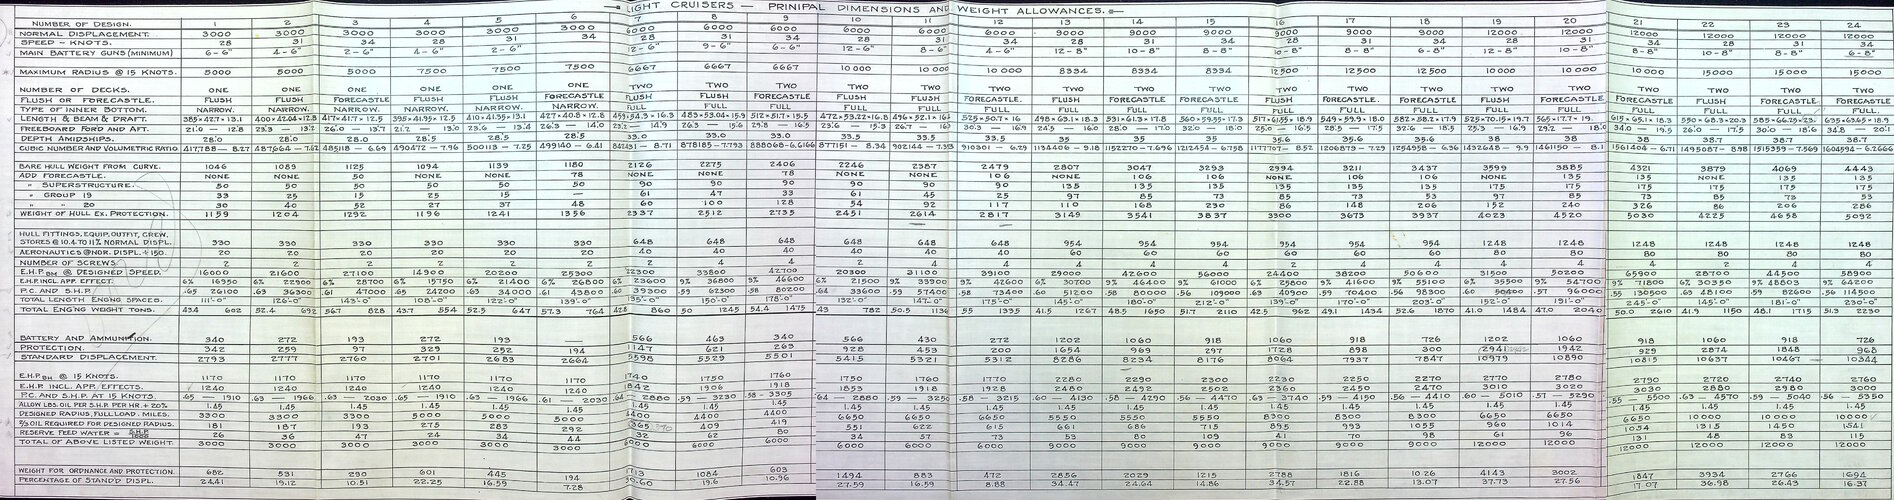 LIGHT CRUISERS — PRINIPAL DIMENSIONS AND WEIGHT ALLOWANCES.
NUMBER OF DESIGN. 1 2 3 4 5 6 7 8 9 10 11 12 13 14 15 16 17 18 19 20 21 22 23 24
NORMAL DISPLACEMENT. 3000 3000 3000 3000 3000 3000 6000 6000 6000 6000 6000 6000 9000 9000 9000 9000 9000 9000 12000 12000 12000 12000 12000 12000
SPEED - KNOTS. 28 31 34 28 31 34 28 31 34 28 31 34 28 31 34 28 31 34 28 31 34 28 31 34
MAIN BATTERY GUNS (MINIMUM) 6-6" 4-6" 2-6" 4-6" 2-6" 12-6" 9-6" 6-6" 12-6" 8-6" 4-6" 12-8" 10-8" 8-8" 10-8" 8-8" 6-8" 12-8" 10-8" 8-8" 10-8" 8-8" 6-8"
MAXIMUM RADIUS @ 15 KNOTS. 5000 5000 5000 7500 7500 7500 6667 6667 6667 10000 10000 10000 8334 8334 8334 12500 12500 12500 10000 10000 10000 15000 15000 15000
NUMBER OF DECKS. ONE ONE ONE ONE ONE ONE TWO TWO TWO TWO TWO TWO TWO TWO TWO TWO TWO TWO TWO TWO TWO TWO TWO TWO
FLUSH OR FORECASTLE. FLUSH FLUSH FORECASTLE FLUSH FLUSH FORECASTLE FLUSH FLUSH FORECASTLE FLUSH FLUSH FORECASTLE. FLUSH FORECASTLE FORECASTLE FLUSH FORECASTLE. FORECASTLE. FLUSH FORECASTLE. FORECASTLE. FLUSH FORECASTLE FORECASTLE
TYPE OF INNER BOTTOM. NARROW. NARROW. NARROW. NARROW. NARROW. NARROW. FULL FULL FULL FULL FULL FULL FULL FULL FULL FULL FULL FULL FULL FULL FULL FULL FULL FULL
LENGTH & BEAM & DRAFT. 385×42.7×13.1 400×42.04×12.8 417×41.7×12.5 395×41.95×12.5 410×41.35×13.1 427×40.8×12.8 459×54.9×16.3 483×53.04×15.9 512×51.7×15.5 472×53.22×16.8 496×52.1×16 525×50.7×16 498×63.1×18.3 531×61.3×17.8 560×59.55×17.3 517×61.55×18.9 549×59.9×18.0 582×58.2×17.9 525×70.15×19.7 565×17.7×19. 615×65.1×18.3 550×68.3×20.3 585×66.75×23. 635×63.65×18.9
FREEBOARD FOR'D AND AFT.
DEPTH AMIDSHIPS.
CUBIC NUMBER AND VOLUMETRIC RATIO 417,788 - 8.27 487664 - 7.62 485118 - 6.69 490472 - 7.96 500113 - 7.25 499140 - 6.41 842431 - 8.71 878185 - 7.793 888068 - 6.6166 877151 - 8.34 902144 - 7.353 910301 - 6.29 1134406 - 9.18 1152270 - 7.696 1212454 - 6.758 1177707 - 8.52 1206879 - 7.29 1254958 - 6.36 1432648 - 9.9 1461150 - 8.1 1561404 - 6.71 1495087 - 898 1515359 - 7.569 1604594 - 6.2666
BARE HULL WEIGHT FROM CURVE. 1046 1089 1125 1094 1139 1180 2126 2275 2406 2246 2387 2479 2807 3047 3293 2994 3211 3437 3599 3885 4321 3879 4069 4443
ADD FORECASTLE. NONE NONE 50 NONE NONE 78 NONE NONE 78 NONE NONE 106 NONE 106 106 NONE 106 106 NONE 106 135 NONE 135 135
" SUPERSTRUCTURE. 50 50 50 50 50 50 90 90 90 90 90 90 135 135 135 135 135 135 175 175 175 175 175 175
" GROUP 19 33 25 15 25 15 — 61 47 33 61 45 25 97 85 73 85 73 53 97 85 73 85 73 53
" " 20 30 40 52 27 37 48 60 100 128 54 92 117 110 168 230 86 148 206 152 240 326 86 206 286
WEIGHT OF HULL EX. PROTECTION. 1159 1204 1292 1196 1241 1356 2337 2512 2735 2451 2614 2817 3149 3541 3837 3300 3673 3937 4023 4520 5030 4225 4658 5092
HULL FITTINGS, EQUIP, OUTFIT, CREW,
STORES @ 10.4 TO 11% NORMAL DISPL. 330 330 330 330 330 330 648 648 648 648 648 648 954 954 954 954 954 954 1248 1248 1248 1248 1248 1248
AERONAUTICS @ NOR. DISPL. ÷ 150. 20 20 20 20 20 20 40 40 40 40 40 40 60 60 60 60 60 60 80 80 80 80 80 80
NUMBER OF SCREWS. 2 2 2 2 2 2 2 4 4 2 2 4 4 4 4 2 4 4 4 4 4 4 4 4
E.H.P. BM @ DESIGNED SPEED. 16000 21600 27100 14900 20200 25300 22300 33800 42700 20300 31100 39100 29000 42600 56000 24400 38200 50600 31500 50200 65900 28700 44500 58900
E.H.P. INCL. APP. EFFECT. 6% 16950 6% 22900 6% 28700 6% 15750 6% 21400 6% 26800 6% 23600 9% 36800 9% 46600 6% 21500 9% 33900 9% 42600 6% 30700 9% 46400 9% 61000 6% 25800 9% 41600 9% 55100 6% 35500 9% 54700 9% 71800 6% 30350 9% 48803 9% 64200
P.C. AND S.H.P. .65 26100 .63 36300 .61 47000 .65 24200 .63 34000 .61 43800 .60 39300 .59 62300 .58 80200 .64 33600 .59 57400 .58 73400 .60 51200 .58 80000 .56 109000 .63 40900 .59 70400 .56 98300 .60 .57 96000 .55 130500 .63 48100 .59 82600 .56 114500
TOTAL LENGTH ENGNG SPACES. 111'-0" 126'-0" 143'-0" 108'-0" 122'-0" 139'-0" 135'-0" 150'-0" 178'-0" 132'-0" 147'-0" 175'-0" 145'-0" 180'-0" 212'-0" 139'-0" 170'-0" 203'-0" 152'-0" 191'-0" 245'-0" 145'-0" 181'-0" 230'-0"
TOTAL ENG'NG WEIGHT TONS. 43.4 602 52.4 692 56.7 828 43.7 554 52.5 647 57.3 764 42.8 860 50 1245 54.4 1475 43 782 50.5 1136 55 1335 41.5 1267 48.5 1650 51.7 2110 42.5 962 49.1 1434 52.6 1870 41.0 1484 47.0 2040 50.0 2610 41.9 1150 48.1 1715 51.3 2230
BATTERY AND AMMUNITION. 340 272 193 272 193 — 566 463 340 566 430 272 1202 1060 918 1060 918 726 1202 1060 918 1060 918 726
PROTECTION. 342 259 97 329 252 194 1147 621 263 928 453 200 1654 969 297 1728 898 300 2941 1942 929 2874 1848 968
STANDARD DISPLACEMENT. 2793 2777 2760 2701 2683 2664 5598 5529 5501 5415 5321 5312 8286 8234 8176 8064 7937 7847 10979 10890 10815 10637 10467 10344
E.H.P. BH @ 15 KNOTS. 1170 1170 1170 1170 1170 1170 1740 1750 1760 1750 1760 1770 2280 2290 2300 2230 2250 2270 2770 2780 2790 2720 2740 2760
E.H.P. INCL. APP. EFFECTS. 1240 1240 1240 1240 1240 1240 1842 1906 1918 1853 1918 1928 2480 2492 2502 2360 2450 2470 3010 3020 3030 2880 2980 3000
P.C. AND S.H.P. AT 15 KNOTS. .65 - 1910 .63 - 1966 .63 - 2030 .65 - 1910 .63 - 1966 .61 - 2030 .64 - 2880 .59 - 3230 .58 - 3305 .64 - 2880 .59 - 3250 .58 - 3215 .60 - 4130 .58 - 4290 .56 - 4470 .63 - 3740 .59 - 4150 .56 - 4410 .60 - 5010 .57 - 5290 .55 - 5500 .63 - 4570 .59 - 5040 .56 - 5350
ALLOW LBS. OIL PER S.H.P. PER HR. + 20% 1.45 1.45 1.45 1.45 1.45 1.45 1.45 1.45 1.45 1.45 1.45 1.45 1.45 1.45 1.45 1.45 1.45 1.45 1.45 1.45 1.45 1.45 1.45 1.45
DESIGNED RADIUS, FULL LOAD. MILES. 3300 3300 3300 5000 5000 5000 4400 4400 4400 6650 6650 6650 5550 5550 5550 8300 8300 8300 6650 6650 6650 10000 10000 10000
2/3 OIL REQUIRED FOR DESIGNED RADIUS. 181 187 193 275 283 292 365 409 419 551 622 615 661 686 715 895 993 1055 960 1014 1054 1315 1450 1541
RESERVE FEED WATER = S.H.P. 26 36 47 24 34 44 32 62 80 34 57 73 53 80 109 41 70 98 61 96 131 48 83 115
TOTAL OF ABOVE LISTED WEIGHT. 3000 3000 3000 3000 3000 3000 6000 6000 6000 6000 6000 6000 9000 9000 9000 9000 9000 9000 12000 12000 12000 12000 12000 12000
WEIGHT FOR ORDNANCE AND PROTECTION. 682 531 290 601 445 194 1713 1084 603 1494 883 472 2856 2029 1215 2788 1816 1026 4143 3002 1847 3934 2766 1694
PERCENTAGE OF STAND'D DISPL. 24.41 19.12 10.51 22.25 16.59 7.28 30.60 19.6 10.96 27.59 16.59 8.88 34.47 24.64 14.86 34.57 22.88 13.07 37.73 27.56 17.07 36.98 26.43 16.37